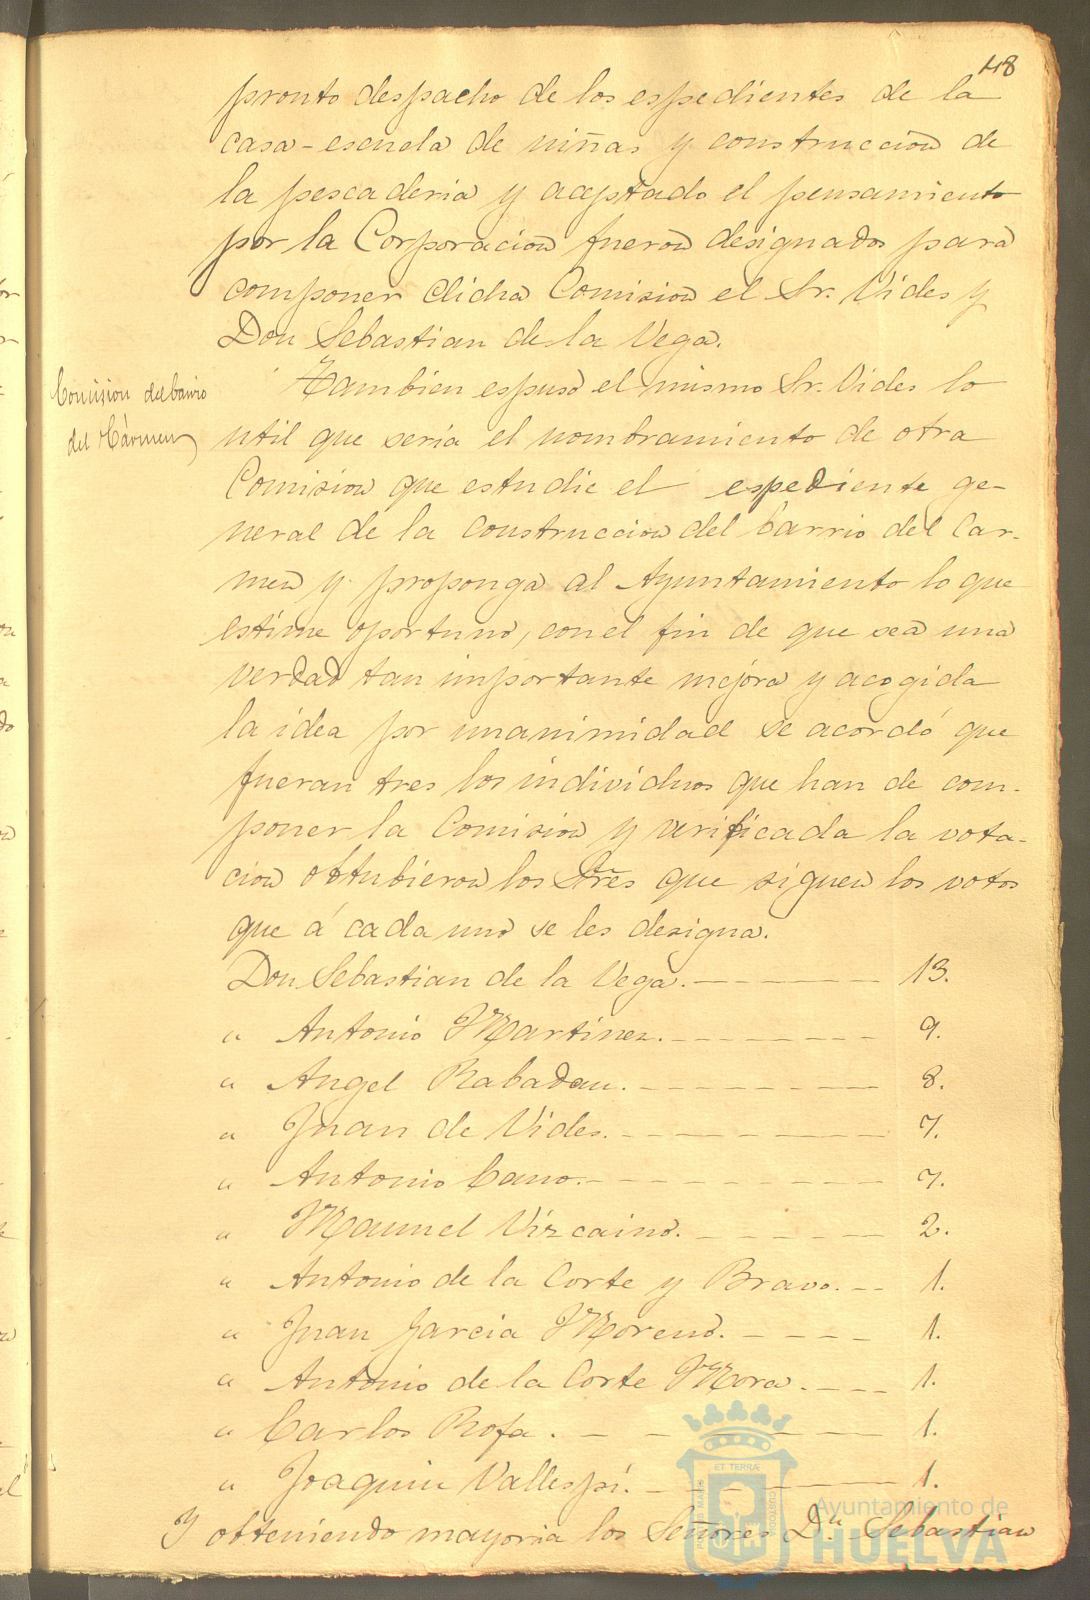 48
pronto despacho de los espedientes de la
casa-escuela de niñas y construccion de
la pescaderia y aceptado el pensamiento
por la Corporacion fueron designados para
componer dicha Comision el Sr. Vides y
Don Sebastian de la Vega.
Comision del barrio
del Cármen
Tambien espuso el mismo Sr. Vides lo
util que seria el nombramiento de otra
Comision que estudie el espediente ge-
neral de la construccion del barrio del Car-
men y proponga al Ayuntamiento lo que
estime oportuno, con el fin de que sea una
verdad tan importante mejora y acogida
la idea por unanimidad se acordó que
fueran tres los individuos que han de com-
poner la Comision y verificada la vota-
cion obtubieron los Sres que siguen los votos
que á cada uno se les designa.
Don Sebastian de la Vega. 13.
" Antonio Martinez. 9.
" Angel Rabadan. 8.
" Juan de Vides. 7.
" Antonio Cano. 7.
" Manuel Vizcaino. 2.
" Antonio de la Corte y Bravo. 1.
" Juan Garcia Moreno. 1.
" Antonio de la Corte Mora. 1.
" Carlos Rofa. 1.
" Joaquin Vallespí. 1.
Y obteniendo mayoria los Señores Dn Sebastian
PORTUS MARIS ET TERRÆ CUSTODIA
Ayuntamiento de
HUELVA